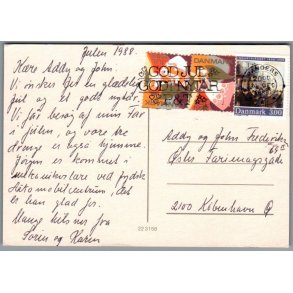 Julen 1988.
Kære Addy og John.
Vi ønsker Jer en glædelig
jul og et godt nytår.
Vi får besøg af min far
i julen, og vore tre
drenge er også hjemme.
Jørgen er kommet i
mekanikerlære ved
Automobilcentrum, det
er han glad for.
Mange hilsner fra
Søren og Karen
GOD JUL
GODT NYTÅR
DANMARK
Danmark 3.00
Addy og John Frederiksen
Østre Farimagsgade
2100 København Ø
223158